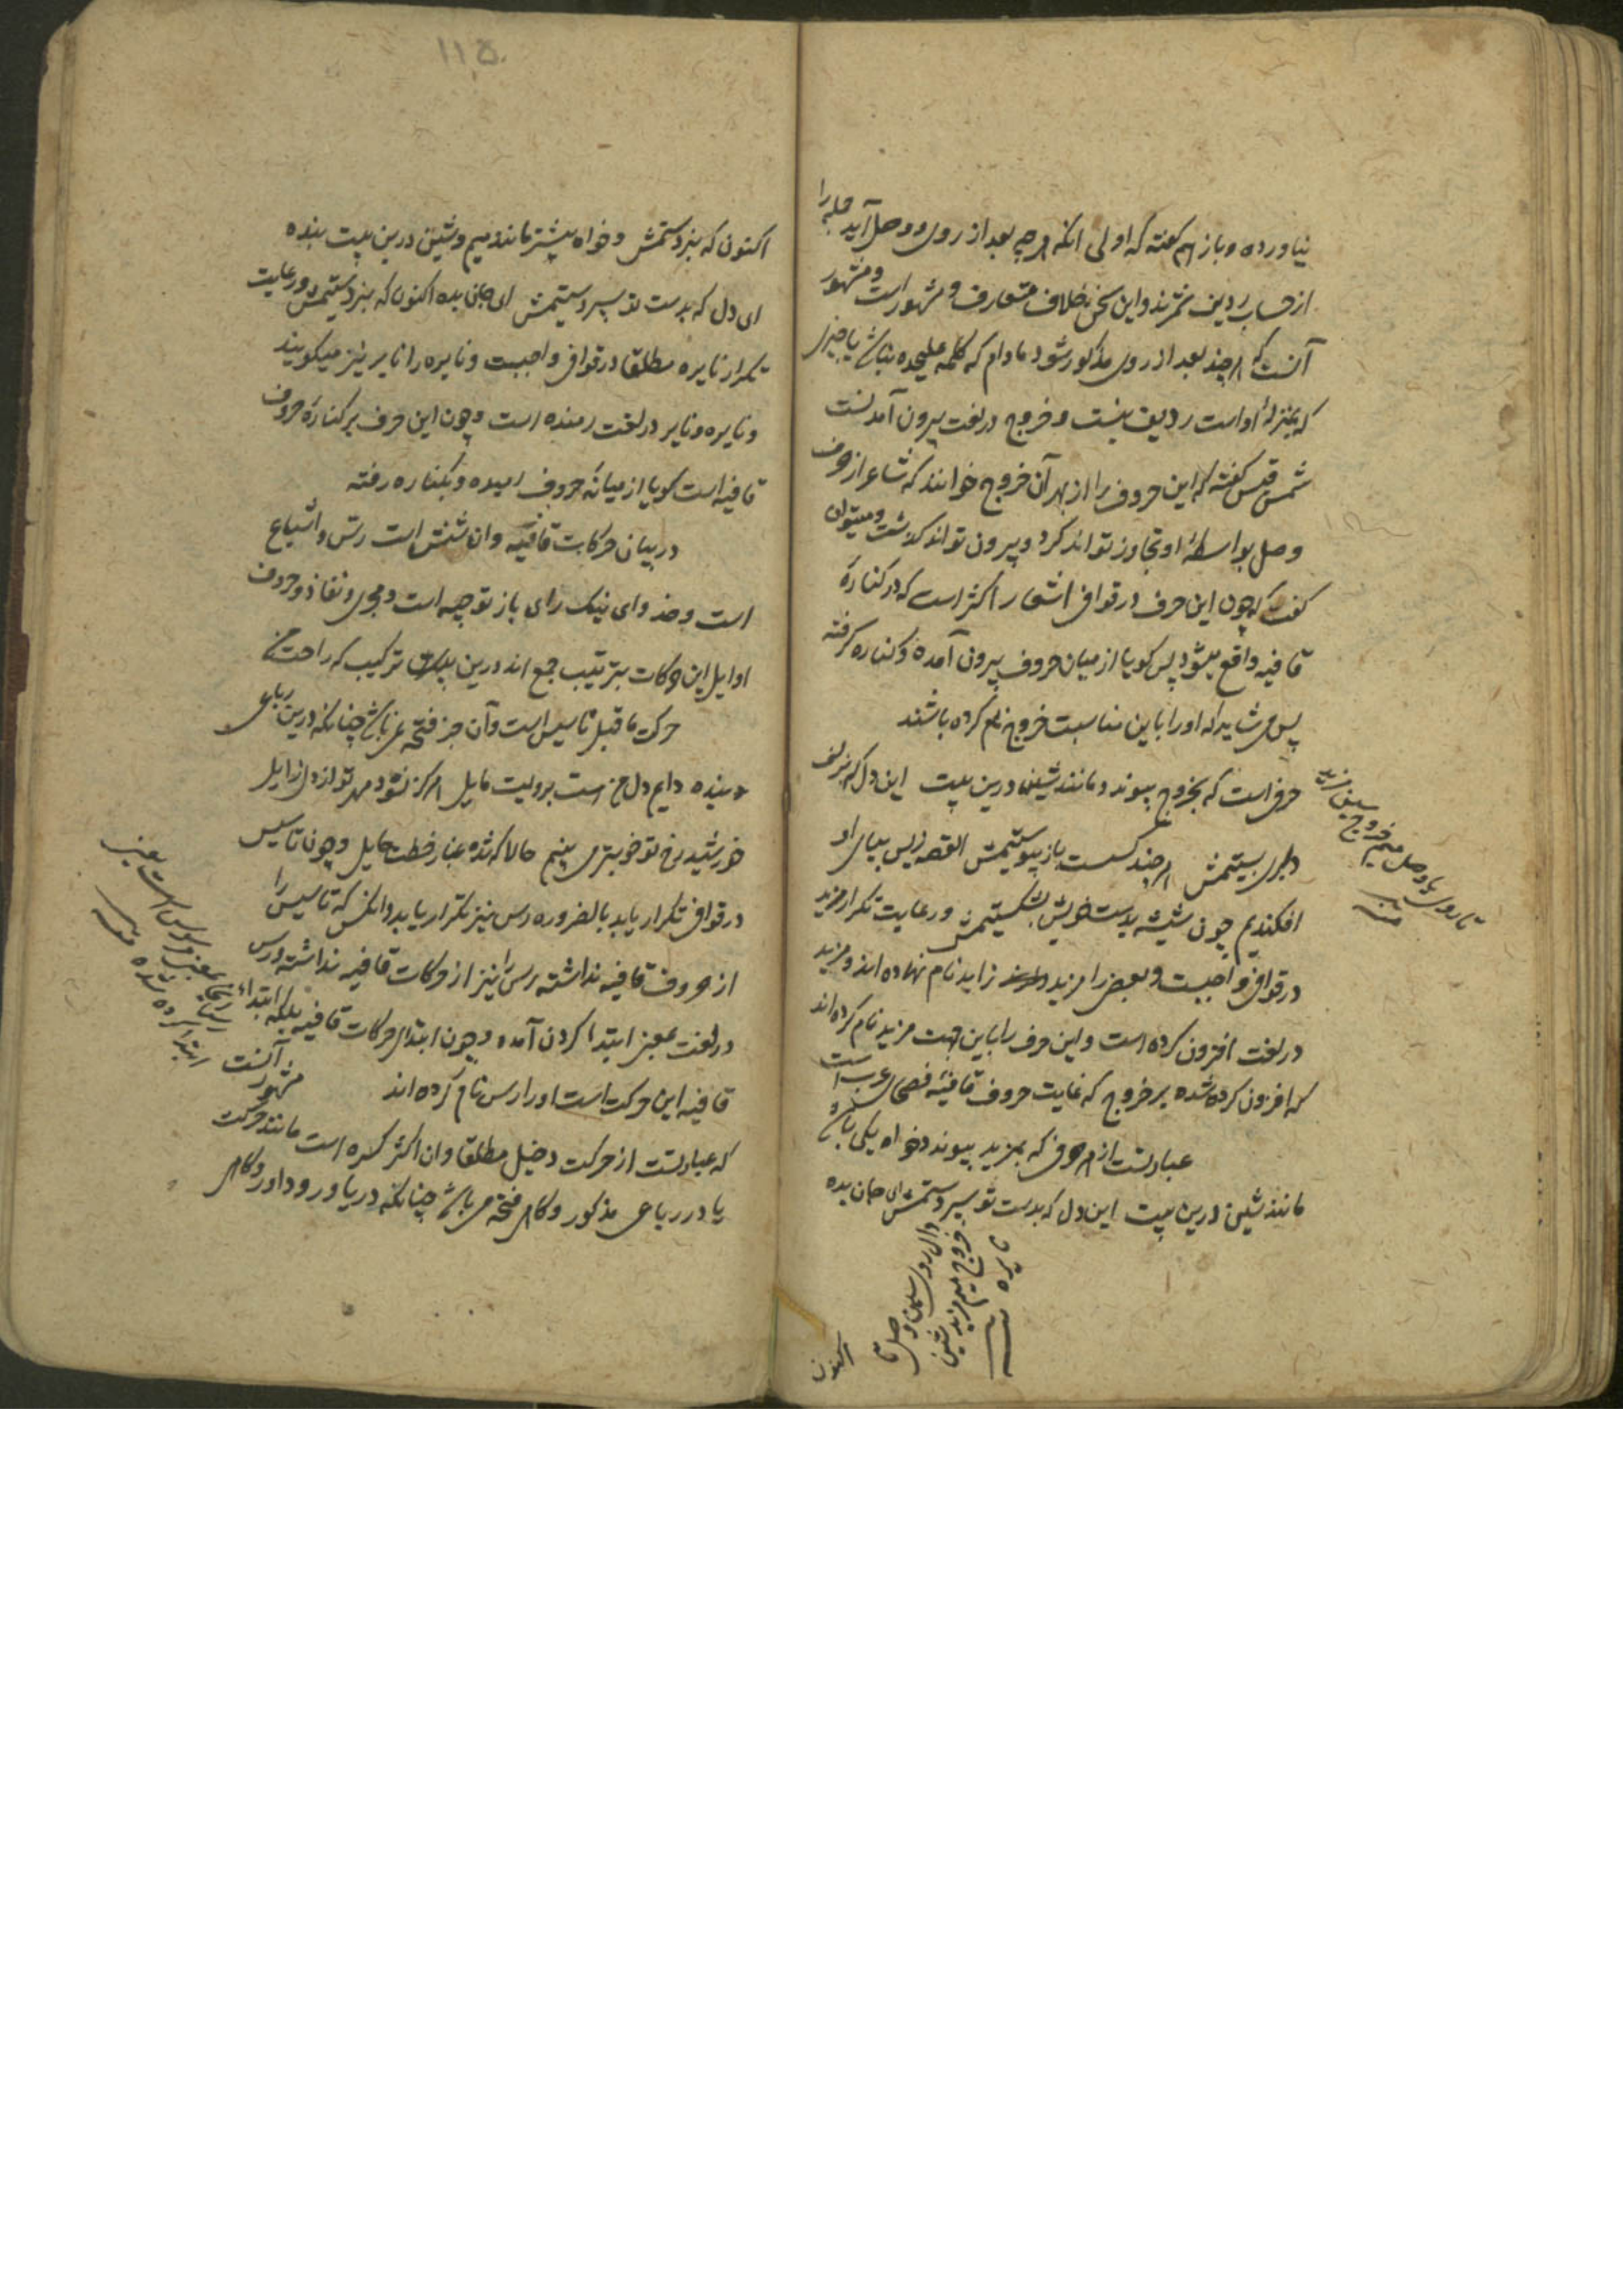 نیاورده و باز هم گفته که اولی آنکه هر چه بعد از روی و وصل آید جمله را
از حساب ردیف شمرند و این سخن بخلاف متعارف و مشهور است و مشهور
آنست که هر چند بعد از روی مذکور شود مادام که کلمه علیحده نباشد یا چیزی
که بمنزله او است ردیف نیست و خروج در لغت بیرون آمدنست
شمس قیس گفته که این حروف را از بهر آن خروج خوانند که شاعر از حرف
وصل بواسطهٔ او تجاوز تواند کرد و بیرون تواند گذشت و میتوان
گفت که چون این حرف در قوافی اشعار اکثر است که در کنارهٔ
قافیه واقع میشود پس گویا از میان حروف بیرون آمده و کناره گرفته
پس می شاید که او را باین مناسبت خروج نام کرده باشند
حرفی است که بخروج پیوندد مانند شین درین بیت این دل که بزلف
دلبری بستیمش هر چند گسست باز پیوستیمش القصه زپس بپای او
افکندیم چون شیشه بدست خویش بشکستیمش و رعایت تکرار مزید
در قوافی واجبست و بعضی را مزید زاید نام نهاده اند و مزید
در لغت افزون کرده است و این حرف را باین جهت مزید نام کرده اند
که افزون کرده شده بر خروج که غایت حروف قافیه فصحای عرب است
عبارتست از هر حرفی که بمزید پیوندد خواه یکی باشد
مانند شین درین بیت این دل که بدست تو سپردستمش ای جان بده
تا روی یا وصل میم خروج شین مزید
منه
دال روی سین و صل تا
خروج میم مزید شین
نایره
منه
اکنون
۱۱۵
اکنون که بنزدستمش و خواه بیشتر مانند میم و شین درین بیت بنده
ای دل که بدست تو سپردستیمش ای جان بده اکنون که بنزدستیمش و رعایت
تکرار نایره مطلقا در قوافی واجبست و نایره را نایر نیز میگویند
و نایره و نایر در لغت رمنده است و چون این حرف بر کنارهٔ حروف
قافیه است گویا از میانهٔ حروف رمیده و بکناره رفته
در بیان حرکات قافیه و آن شش است رس و اشباع
است و حذو ای نیک رای باز توجیه است و مجری و نفاذ و حروف
اوایل این حرکات بترتیب جمع اند درین ترکیب که
حرکت ما قبل تاسیس است و آن جز فتحه نمی باشد چنانکه درین رباعی
دایم دل من است برویت مایل هرگز نشود مهر تو از دل زایل
خورشید رخ تو خوبتر می بینم حالا که شده غبار خطت حایل و چون تاسیس
در قوافی تکرار یابد بالضروره رس نیز تکرار یابد و آنکس که تاسیس را
از حروف قافیه نداشته رس را نیز از حرکات قافیه نداشته و رس
در لغت بمعنی ابتدا کردن آمده و چون ابتدای حرکات قافیه بلکه ابتداء
قافیه این حرکت است او را رس نام کرده اند
مشهور آنست
که عبارتست از حرکت دخیل مطلقا و آن اکثر کسره است مانند حرکت
یا در رباعی مذکور و گاهی فتحه می باشد چنانکه در یاور و داور و گاهی